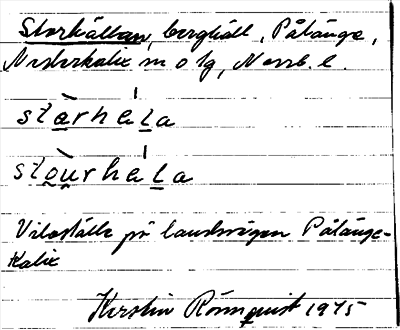 Storhällan, berghäll, Pålänge,
Nederkalix sn o tg, Norrb. l.
stàrhéla
stòurhéla
Viloställe på landsvägen Påläng-
Kalix
Kerstin Rönnquist 1975